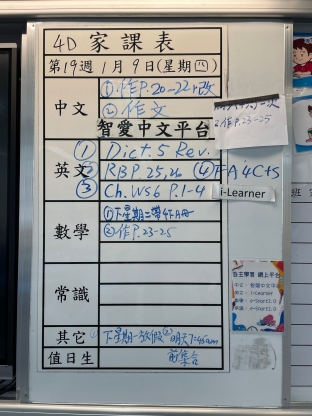 4D 家課表
第19週 1月9日(星期四)
中文
①作P.20-22+改
②作文
智愛中文平台
英文
① Dict. 5 Rev.
② RBP.25,26 ④FA4C+S
③ Ch. WS6 P.1-4
i-Learner
數學
①下星期二帶4下A冊
②作P.23-25
2作P.23-25
常識
其它
①下星期一放假②明天7:45am
前集合
值日生
自主學習 網上平台
中文：智愛中文平台
英文：i-Learner